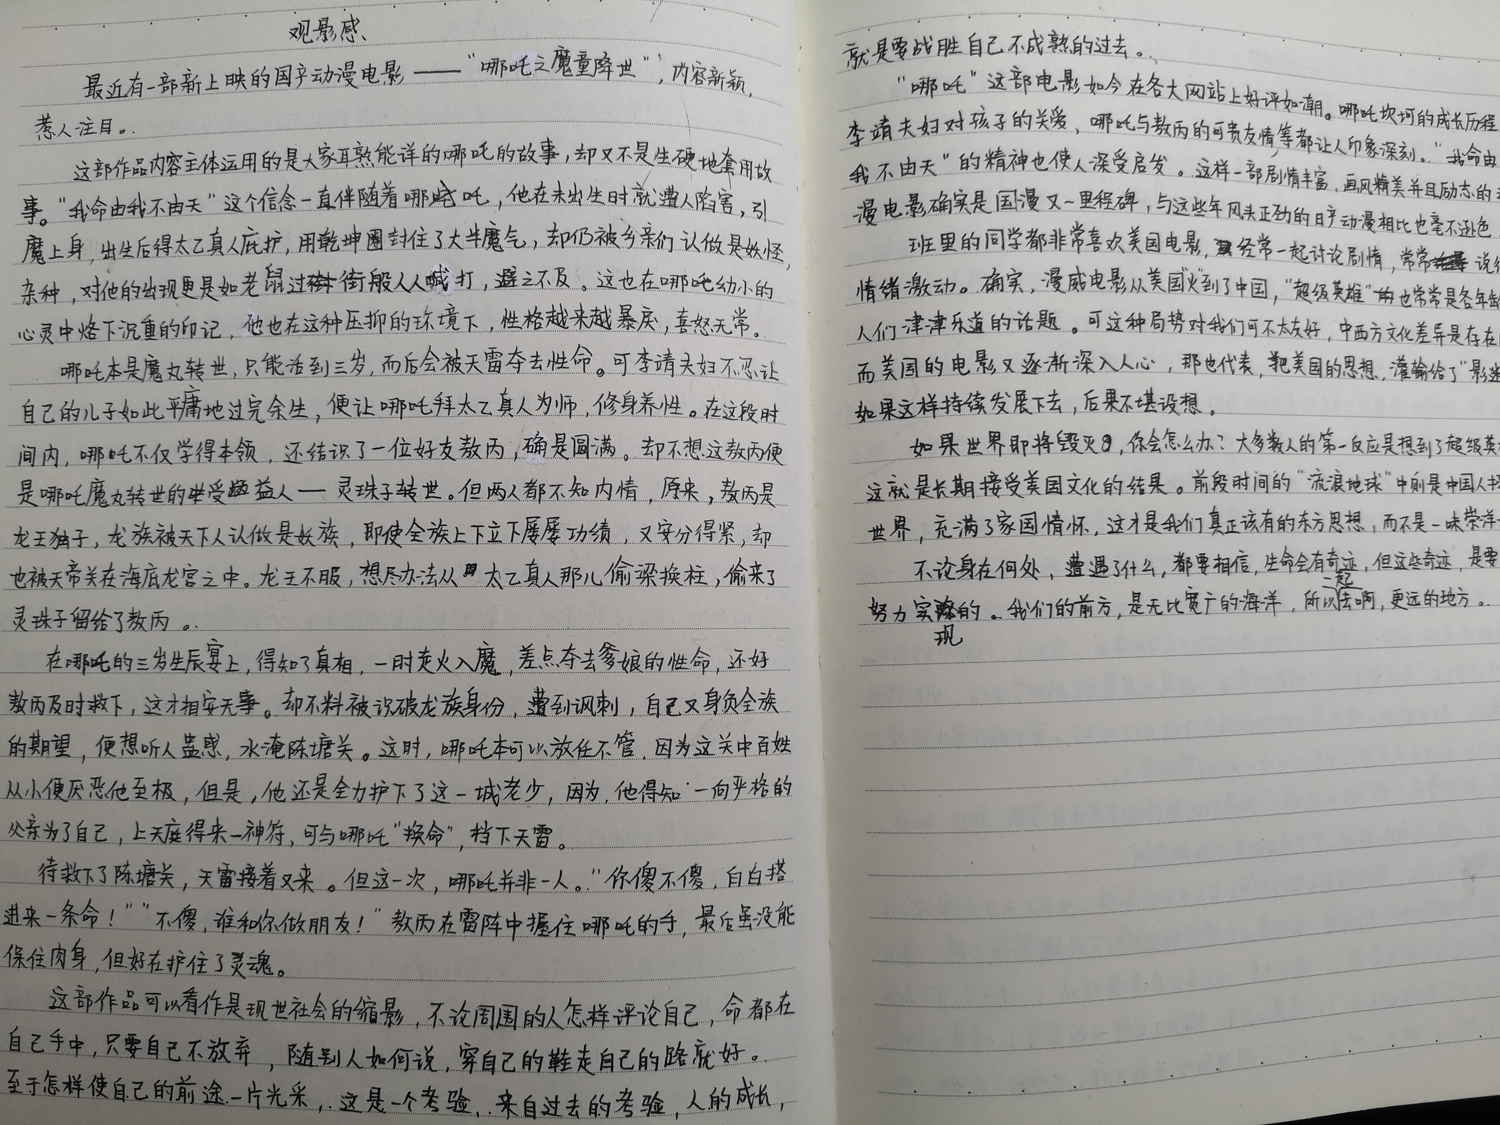 观影感
最近有一部新上映的国产动漫电影——“哪吒之魔童降世”，内容新颖，
惹人注目。
这部作品内容主体运用的是大家耳熟能详的哪吒的故事，却又不是生硬地套用故
事。“我命由我不由天”这个信念一直伴随着哪吒，他在未出生时就遭人陷害，引
魔上身，出生后得太乙真人庇护，用乾坤圈封住了大半魔气，却仍被乡亲们认做是妖怪，
杂种，对他的出现更是如老鼠过街般人人喊打，避之不及。这也在哪吒幼小的
心灵中烙下沉重的印记，他也在这种压抑的环境下，性格越来越暴戾，喜怒无常。
哪吒本是魔丸转世，只能活到三岁，而后会被天雷夺去性命。可李靖夫妇不忍让
自己的儿子如此平庸地过完余生，便让哪吒拜太乙真人为师，修身养性。在这段时
间内，哪吒不仅学得本领，还结识了一位好友敖丙，确是圆满。却不想这敖丙便
是哪吒魔丸转世的受益人——灵珠子转世。但两人都不知内情，原来，敖丙是
龙王独子，龙族被天下人认做是妖族，即使全族上下立下屡屡功绩，又安分得紧，却
也被天帝关在海底龙宫之中。龙王不服，想尽办法从太乙真人那儿偷梁换柱，偷来了
灵珠子留给了敖丙。
在哪吒的三岁生辰宴上，得知了真相，一时走火入魔，差点夺去爹娘的性命，还好
敖丙及时救下，这才相安无事。却不料被识破龙族身份，遭到讽刺，自己又身负全族
的期望，便想听人蛊惑，水淹陈塘关。这时，哪吒本可以放任不管，因为这关中百姓
从小便厌恶他至极，但是，他还是全力护下了这一城老少，因为，他得知一向严格的
父亲为了自己，上天庭得来一神符，可与哪吒“换命”，挡下天雷。
待救下了陈塘关，天雷接着又来。但这一次，哪吒并非一人。“你傻不傻，白白搭
进来一条命！”“不傻，谁和你做朋友！”敖丙在雷阵中握住哪吒的手，最后虽没能
保住肉身，但好在护住了灵魂。
这部作品可以看作是现世社会的缩影，不论周围的人怎样评论自己，命都在
自己手中，只要自己不放弃，随别人如何说，穿自己的鞋走自己的路就好。
至于怎样使自己的前途一片光采，这是一个考验，来自过去的考验，人的成长，
就是要战胜自己不成熟的过去。
“哪吒”这部电影如今在各大网站上好评如潮。哪吒坎坷的成长历程，
李靖夫妇对孩子的关爱，哪吒与敖丙的可贵友情等都让人印象深刻。“我命由
我不由天”的精神也使人深受启发。这样一部剧情丰富，画风精美并且励志的
漫电影确实是国漫又一里程碑，与这些年风头正劲的日产动漫相比也毫不逊色
班里的同学都非常喜欢美国电影，经常一起讨论剧情，常常说得
情绪激动。确实，漫威电影从美国“火”到了中国，“超级英雄”也常常是各年龄
人们津津乐道的话题。可这种局势对我们可不太友好，中西方文化差异是存在的
而美国的电影又逐渐深入人心，那也代表，把美国的思想，灌输给了“影迷
如果这样持续发展下去，后果不堪设想。
如果世界即将毁灭，你会怎么办？大多数人的第一反应是想到了超级英
这就是长期接受美国文化的结果。前段时间的“流浪地球”中则是中国人拯
世界，充满了家国情怀，这才是我们真正该有的东方思想，而不是一味崇洋
不论身在何处，遭遇了什么，都要相信，生命会有奇迹，但这些奇迹，是要
努力实现的。我们的前方，是无比宽广的海洋，所以一起去啊，更远的地方。